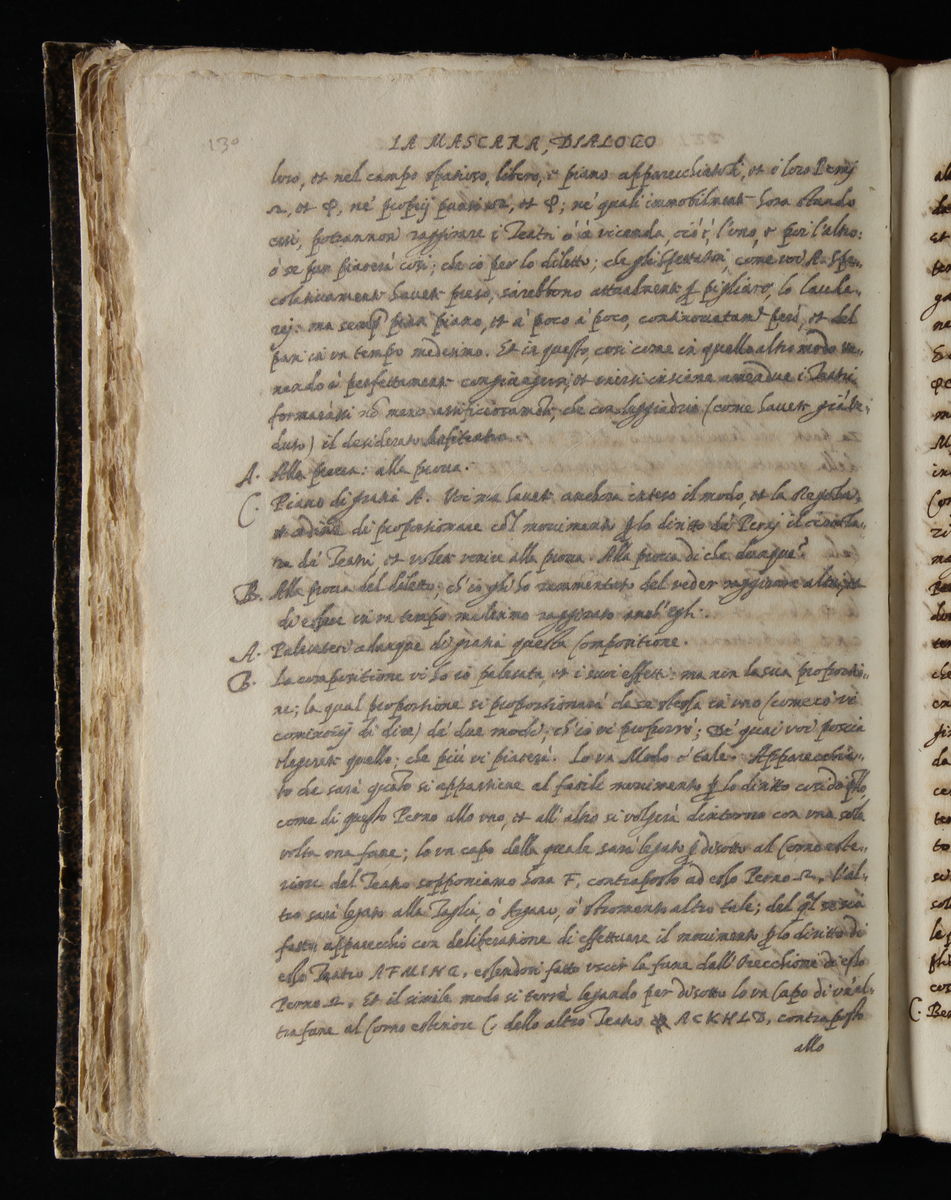 130
LA MASCARA, DIALOGO
loro, et nel campo spatioso, libero, e piano apparecchiato, et i loro Pernij
Ω, et φ, ne' proprij Ω, et φ; ne' quali immobilment hora stando
essi, potrannosi raggirare i Teatri ò à vicenda, ciò è, l'uno, e poi l'altro:
ò se pur piacerà così; che ciò per lo diletto; che gli spettatori, come voi A. spe-
colativament havet preso, sarebbono attualment p pigliare, lo laude-
rej: ma pian piano, et à poco à poco, et del
pari in un tempo medesimo. Et in questo, così come in quello altro modo ve-
nendo à perfettament congiugersi, et unirsi insieme amendue i Teatri
formarassi nō meno artificiosamēt, che con leggiadria (come havet già ve-
duto) il desiderato Anfiteatro.
A. Alla prova: alla prova.
C. Piano di gratia A. Voi nō havet anchora inteso il modo, et la Regola,
et ordine di proportionare col movimento p lo diritto de' Pernij il circola-
re de' Teatri, et volet venire alla prova. Alla prova di che dunque?
B. Alla prova del diletto; ch'io gli ho rammentato del veder raggirare altri, et
di essere in un tempo medesimo raggirato anch'egli.
A. Palesateci adunque di gratia questa Compositione.
B. La compositione vi ho io palesata, et i suoi effetti: ma non la sua proportio-
ne; la qual proportione si proportionarà da se stessa in uno (come io vi
cominciaj di dire) de' due modi; ch'io vi proporrò; De' quai voi poscia
elegeret quello; che più vi piacerà. Lo un Modo è tale. Apparecchia-
to che sarà quāto si appartiene al facile movimento p lo diritto
come di questo Perno allo uno, et all'altro si volgerà dintorno con una sola
volta una fune; lo un capo della quale sarà legato p disotto al Corno este-
riore del Teatro sopponiamo hora F, contraposto ad esso Perno Ω, l'al-
tro sarà legato alla Taglia, ò Argano, ò stromento altro tale; del q̃l
fatto apparecchio con deliberatione di effettuare il movimento p lo diritto di
esso Teatro AFMING, essendosi fatto uscir la fune dall'Orecchione di esso
Perno Ω. Et il simile modo si terrà legando per disotto lo un Capo di un'al-
tra fune al Corno esteriore C, dello altro Teatro ACKHLD, contraposto
allo